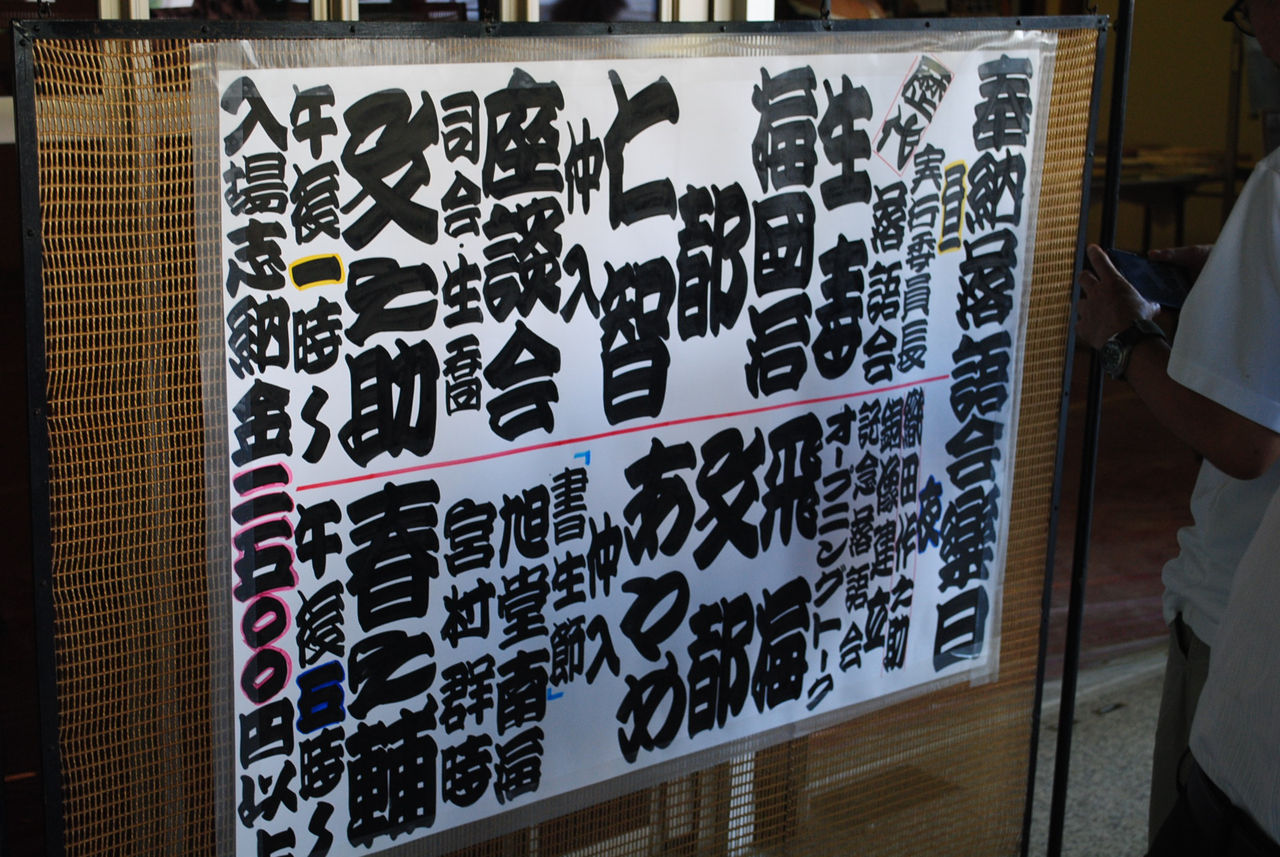 奉納落語会番組
昼
歴代
実行委員長
落語会
生喬
生寿
福団治
都
仁智
仲入
座談会
司会・生喬
文之助
午後一時〜
夜
織田作之助
銅像建立
記念落語会
オープニングトーク
飛海
文都
あやめ
仲入
『書生節』
旭堂南海
宮村群時
春之輔
午後五時〜
入場志納金二五〇〇円以上